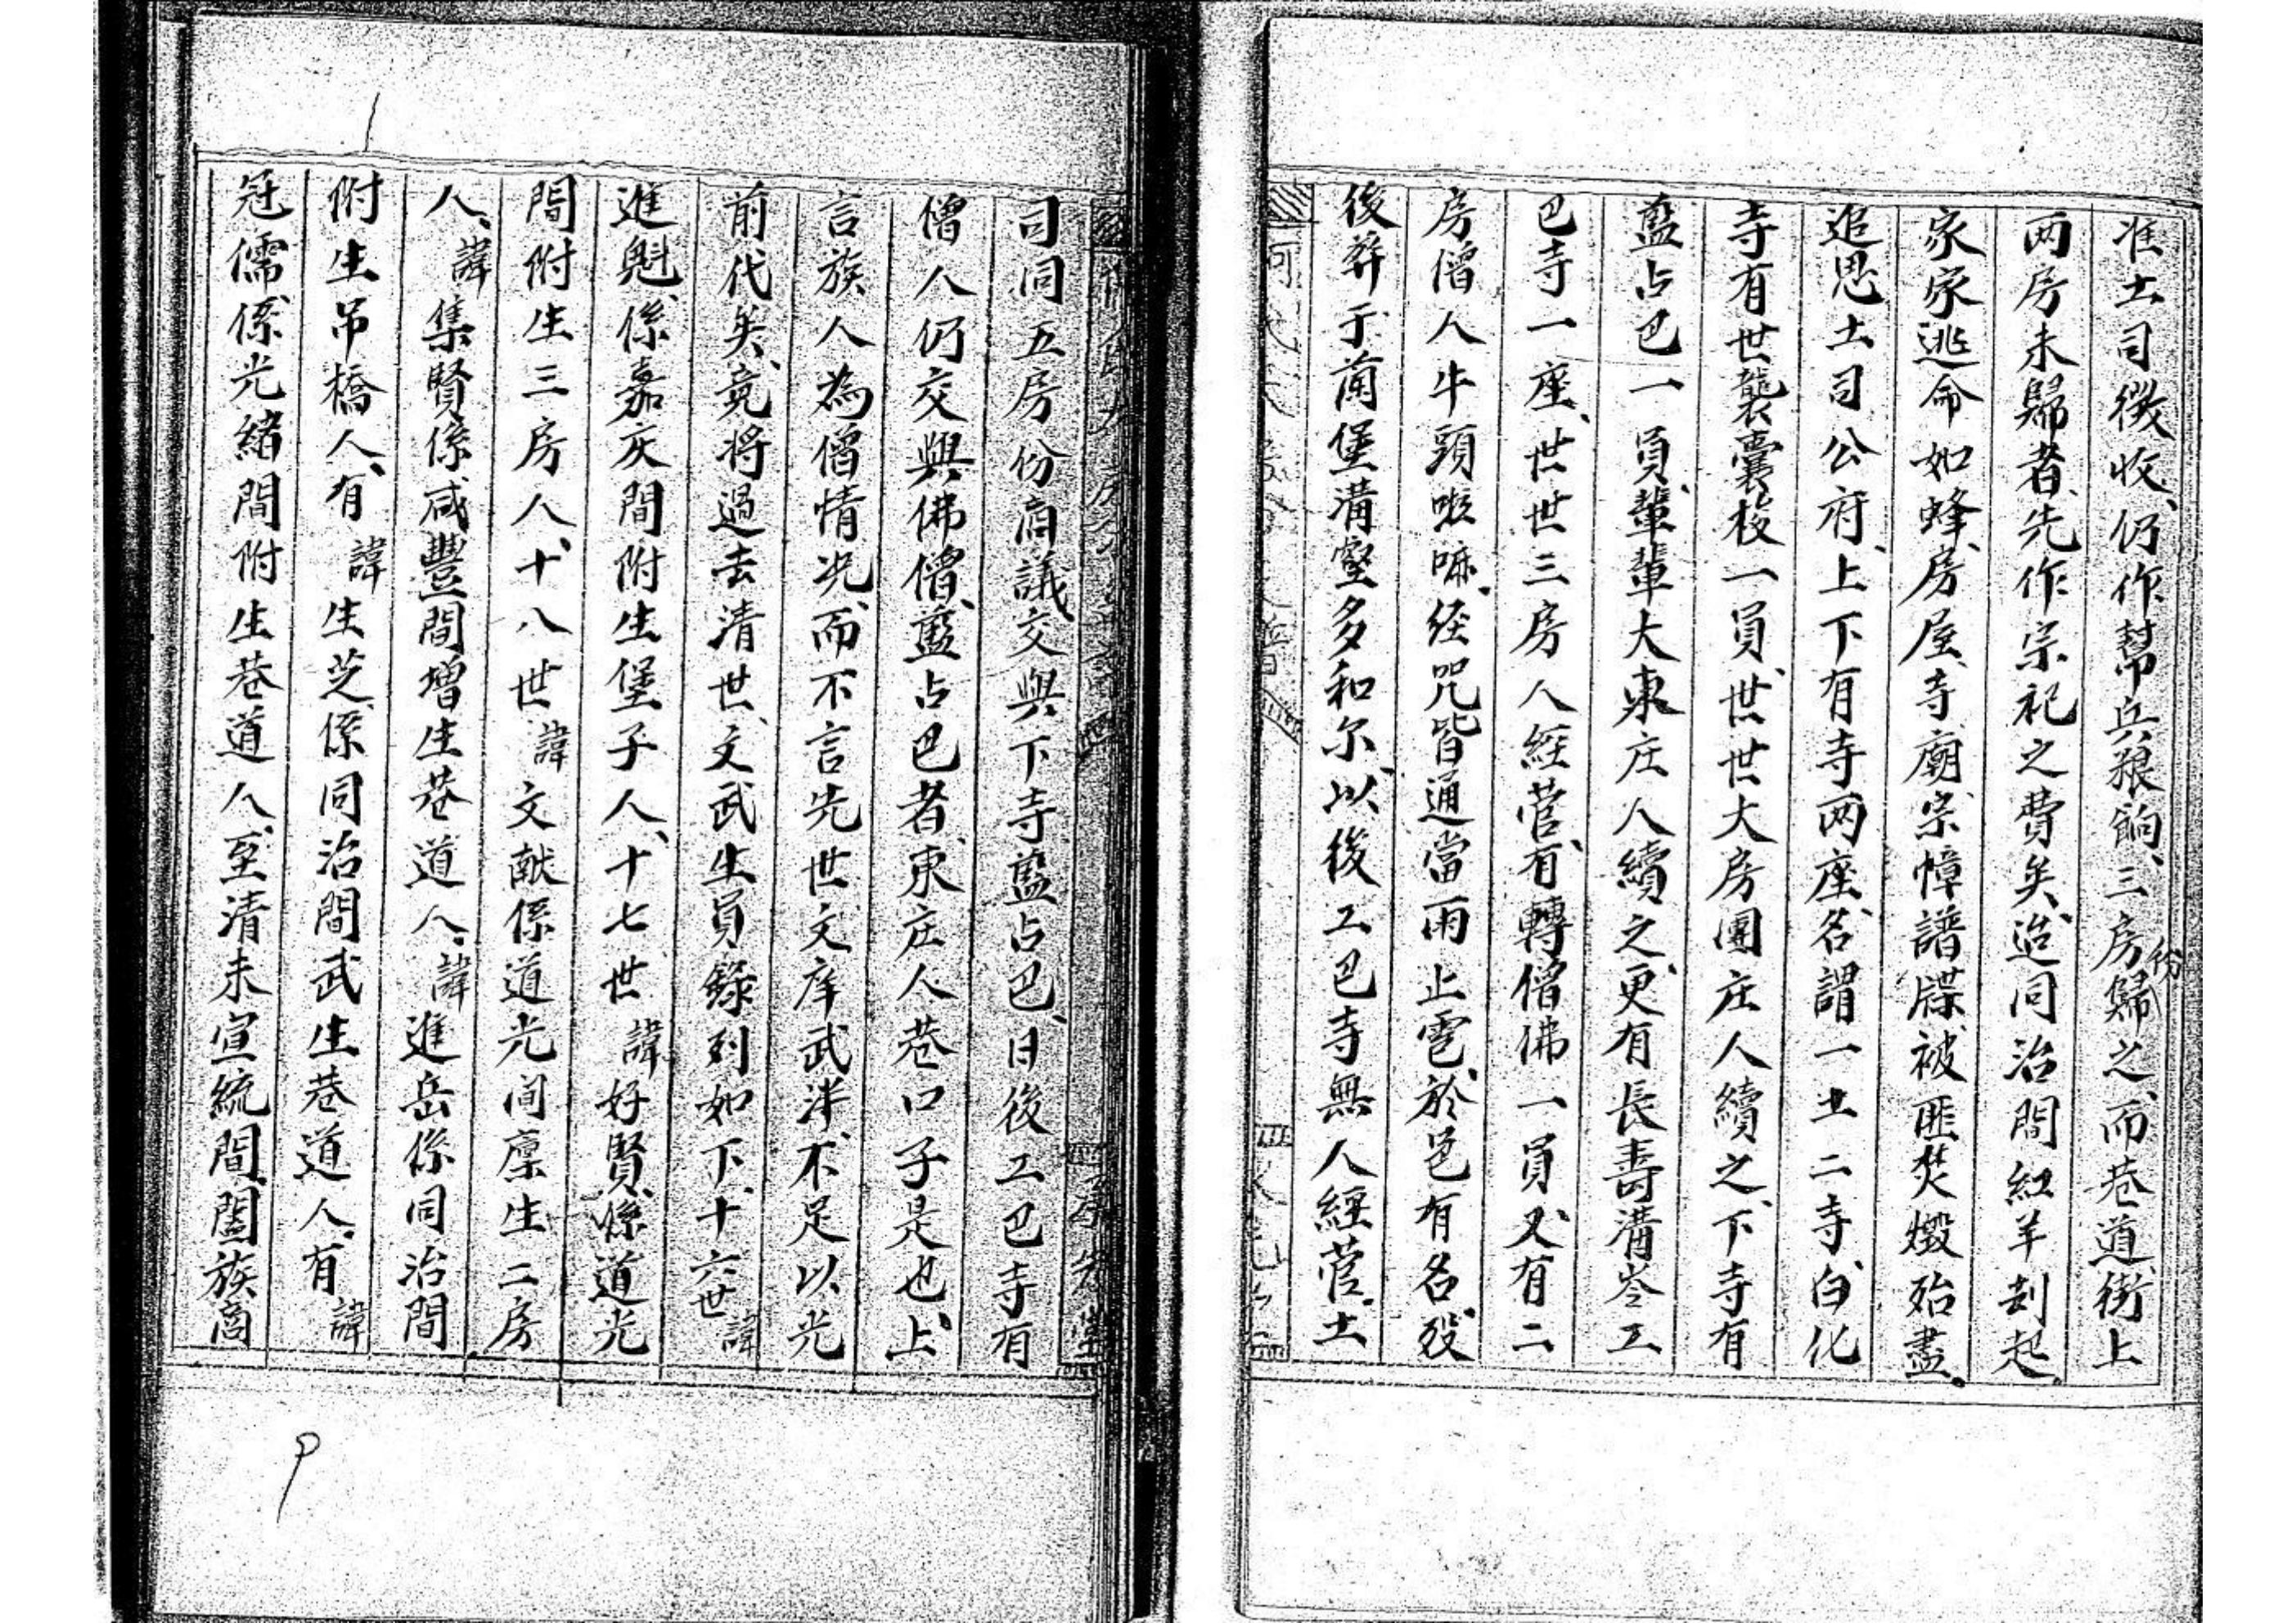 准土司徵收、仍作幫兵粮餉、三房份歸之、而巷道、街上
兩房未歸者、先作宗祀之費矣、迨同治間紅羊刦起、
家家逃命如蜂、房屋、寺廟、宗幛譜牒、被匪焚燬殆盡。
追思土司公府、上下有寺兩座、名謂一土二寺、白化
寺有世襲囊校一員、世世大房圍庄人續之、下寺有
藍占巴一員、輩輩大東庄人續之、更有長壽溝岺工
巴寺一座、世世三房人經營、有轉僧佛一員、又有二
房僧人牛頭喇嘛、經咒皆通、當雨止雹、於邑有名、歿
後葬于蘭堡溝壑多和尔、以後工巴寺無人經營、土
司同五房份商議、交與下寺藍占巴、日後工巴寺有
僧人仍交與佛僧、藍占巴者、東庄人巷口子是也、上
言族人為僧情况、而不言先世文庠武泮、不足以光
前代矣、竟將過去清世、文武生員錄列如下、十六世諱
進魁、係嘉庆間附生堡子人、十七世諱好賢、係道光
間附生三房人、十八世諱文献係道光间廪生二房
人、諱集賢係咸豐間增生巷道人、諱進岳係同治間
附生吊橋人、有諱生芝、係同治間武生巷道人、有諱
冠儒、係光緒間附生巷道人、至清末宣統間、闔族商